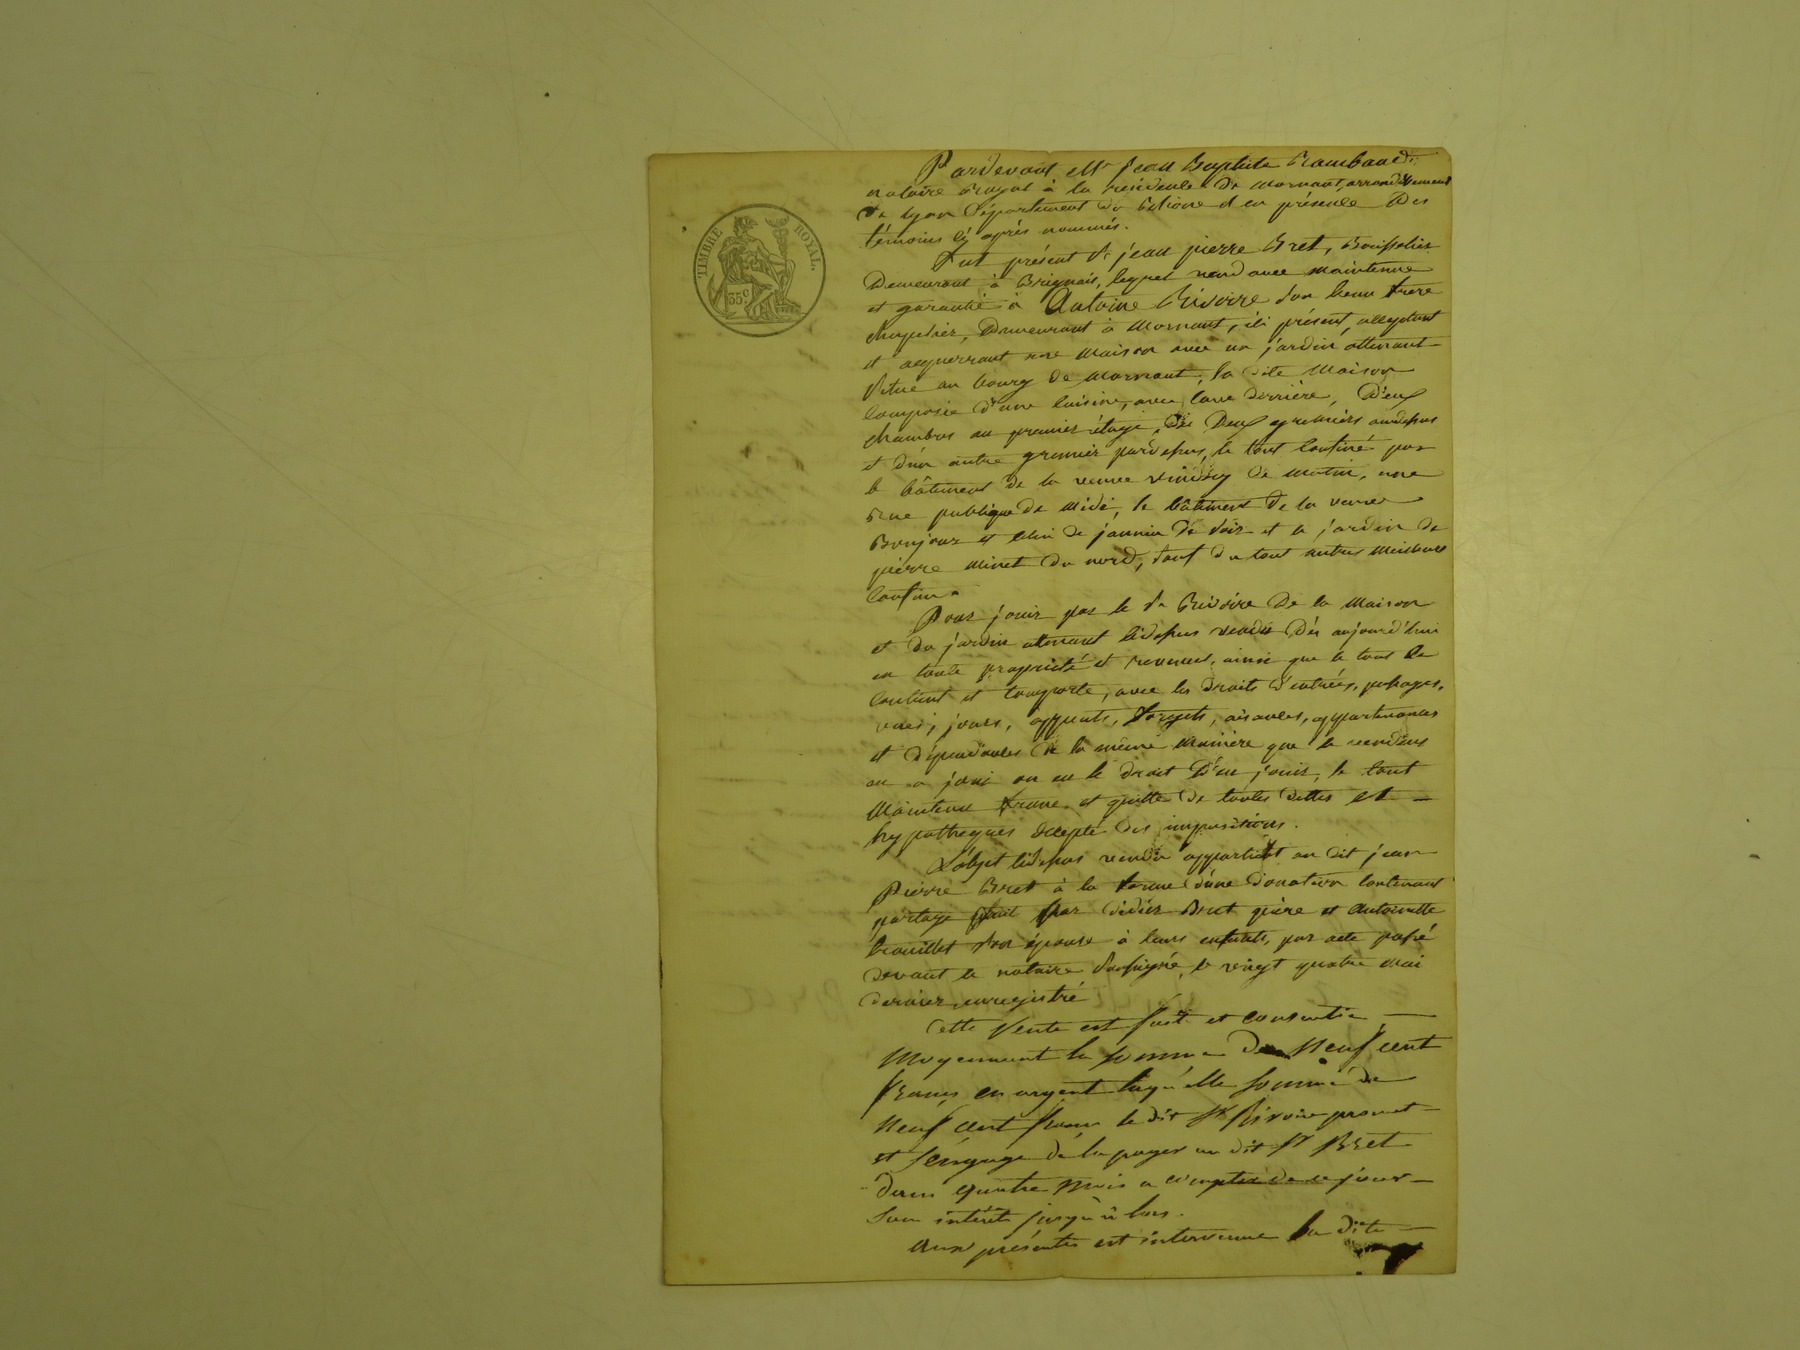 TIMBRE ROYAL.
35.c
Pardevant Me Jean Baptiste Rambaud
notaire Royal à la residence de Mornant, arrondissement
de Lyon Département du Rhône et en présence Des
témoins cy après nommés.
Fut présent Sr jean pierre Bret,
Demeurant à Brignais, lequel vend avec maintenue
et garantie à Antoine Rivoire son beau frere
chapelier, Demeurant à Mornant, ici présent, acceptant
et acquerrant une Maison avec un jardin attenant
situé au bourg de Mornant, la dite Maison
composée d'une cuisine, avec cave derrière, Deux
chambres au premier étage, De Deux greniers audessus
et d'un autre grenier pardessus, le tout confiné par
le bâtiment de la veuve de matin, une
Rue publique de Midi, le bâtiment de la veuve
Bonjour et celui de jannin de soir et le jardin de
pierre Minet du nord, sauf du tout autres meilleurs
confins.
Pour jouir par le Sr Rivoire De la Maison
et du jardin attenant cidessus vendu, Dès aujourd'hui
en toute propriété et revenus, ainsi que le tout se
contient et comporte, avec les droits d'entrées, passages,
vues, jours, appents, forgets, aisances, appartenances
et dépendances de la même Manière que le vendeur
en a joui ou eu le droit D'en jouir, le tout
Maintenu franc et quitte de toutes dettes et
hypothèques excepté des impositions.
L'objet cidessus vendu appartient au dit jean
Pierre Bret à la forme d'une Donation contenant
partage fait par didier Bret père et Antoinette
son épouse à leurs enfants, par acte passé
devant le notaire soussigné, le vingt quatre Mai
dernier, enregistré
Cette Vente est fait et consentie
Moyennant la somme De Neuf cent
francs en argent laquelle somme de
Neuf cent francs le dit Sr Rivoire promet
et s'engage de la payer au dit Sr Bret
dans quatre Mois a compter de ce jour
sans intérêt jusqu'à lors.
Aux présentes est intervenue la dite